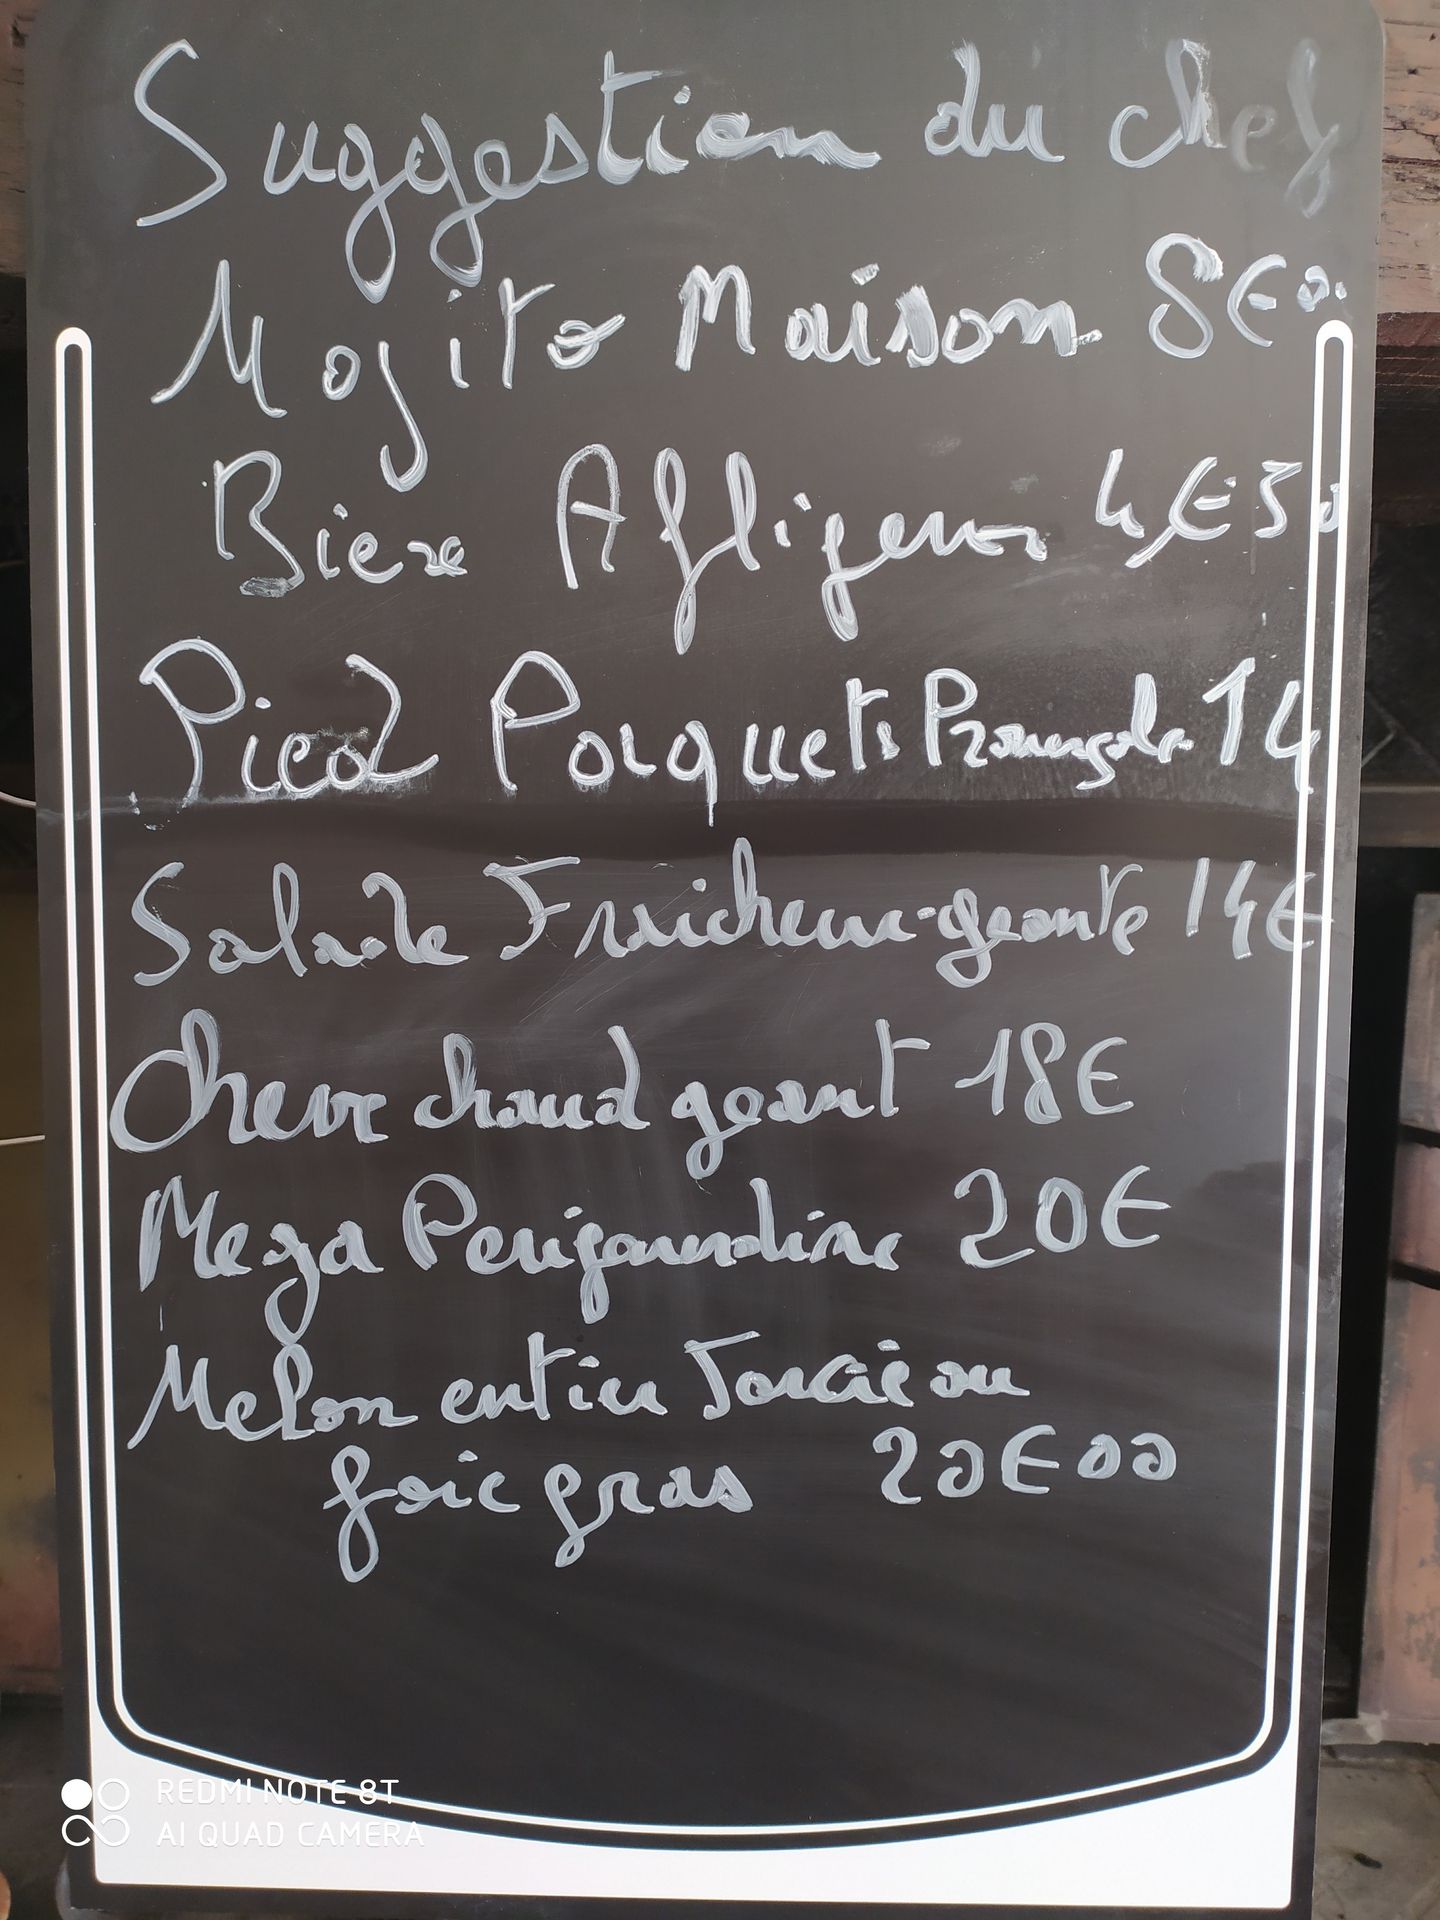 Suggestion du chef
Mojito Maison 8€0.
Biere Afligem 4,€50
Salade Fraicheur geante 14€
Chevre chaud geant 18€
Mega Perigourdine 20€
Melon entier
foie gras 20€00
REDMI NOTE 8T
AI QUAD CAMERA